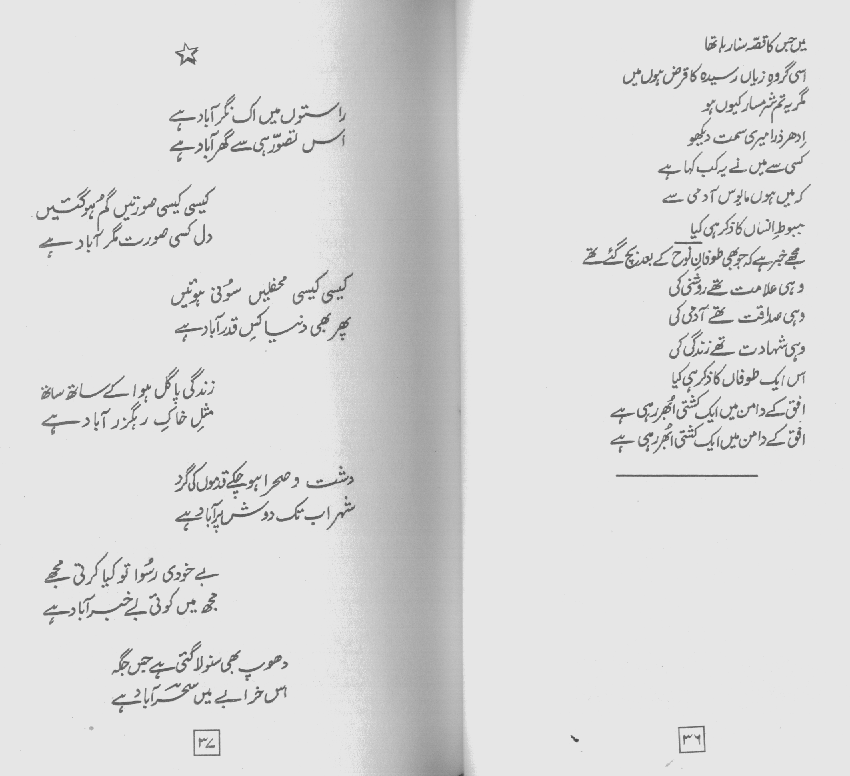 میں جس کا قصّہ سنا رہا تھا
اسی گروہِ زیاں رسیدہ کا قرض ہوں میں
مگر یہ تم شرمسار کیوں ہو
اِدھر ذرا میری سمت دیکھو
کسی سے میں نے یہ کب کہا ہے
کہ میں ہوں مایوس آدمی سے
ہبوطِ انساں کا ذکر ہی کیا
مجھے خبر ہے کہ جو بھی طوفانِ نوح کے بعد بچ گئے تھے
وہی علامت تھے روشنی کی
وہی صداقت تھے آدمی کی
وہی شہادت تھے زندگی کی
اس ایک طوفاں کا ذِکر ہی کیا
افق کے دامن میں ایک کشتی اُبھر رہی ہے
افق کے دامن میں ایک کشتی اُبھر رہی ہے
۳۶
راستوں میں اک نگر آباد ہے
اس تصوّر ہی سے گھر آباد ہے
کیسی کیسی صورتیں گم ہو گئیں
دل کسی صورت مگر آباد ہے
کیسی کیسی محفلیں سوُنی ہوئیں
پھر بھی دنیا کس قدر آباد ہے
زندگی پاگل ہوا کے ساتھ ساتھ
مثلِ خاکِ رہگزر آباد ہے
دشت و صحرا ہو چکے قدموں کی گرد
شہر اب تک دوش پر آباد ہے
بے خودی رسُوا تو کیا کرتی مجھے
مجھ میں کوئی بے خبر آباد ہے
دھوپ بھی سنولا گئی ہے جس جگہ
اس خرابے میں سحر آباد ہے
۳۷